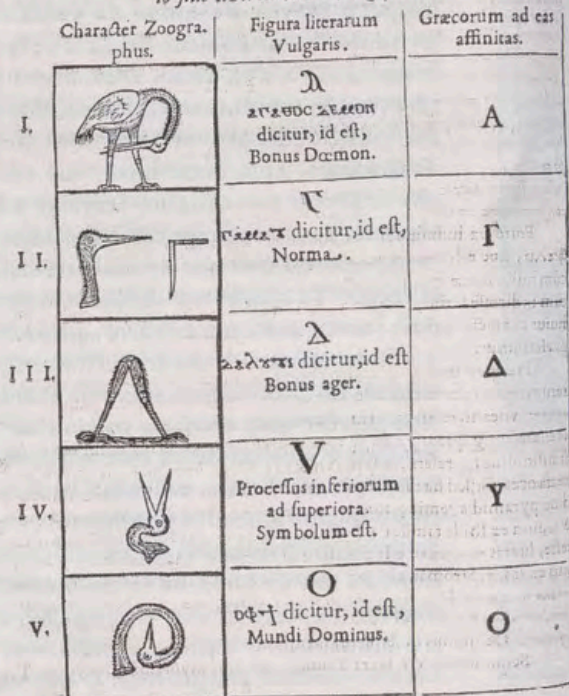 Character Zoogra-
phus.
Figura literarum
Vulgaris.
Græcorum ad eas
affinitas.
I.
ⲁⲅⲁⲑⲟⲥ ⲇⲉⲙⲱⲛ
dicitur, id eſt,
Bonus Dœmon.
A
II.
dicitur, id eſt,
Norma.
Γ
III.
Δ
dicitur, id eſt
Bonus ager.
Δ
IV.
V
Proceſſus inferiorum
ad ſuperiora.
Symbolum eſt.
Y
V.
O
dicitur, id eſt,
Mundi Dominus.
O